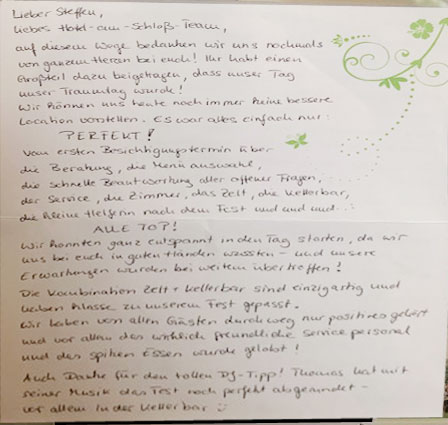 Lieber Steffen,
liebes Hotel-am-Schloß-Team,
auf diesem Wege bedanken wir uns nochmals
von ganzem Herzen bei euch! Ihr habt einen
Großteil dazu beigetragen, dass unser Tag
unser Traumtag wurde!
Wir können uns heute noch immer keine bessere
Location vorstellen. Es war alles einfach nur:
PERFEKT!
Vom ersten Besichtigungstermin über
die Beratung, die Menüauswahl,
die schnelle Beantwortung aller offener Fragen,
der Service, die Zimmer, das Zelt, die Kellerbar,
die kleine Helferin nach dem Fest und und und...
ALLE TOP!
Wir konnten ganz entspannt in den Tag starten, da wir
uns bei euch in guten Händen wussten - und unsere
Erwartungen wurden bei weitem übertroffen!
Die Kombination Zelt + Kellerbar sind einzigartig und
haben klasse zu unserem Fest gepasst.
Wir haben von allen Gästen durchweg nur positives gehört
und vor allem das wirklich freundliche Servicepersonal
und das spitzen Essen wurde gelobt!
Auch Danke für den tollen DJ-Tipp! Thomas hat mit
seiner Musik das Fest noch perfekt abgerundet -
vor allem in der Kellerbar